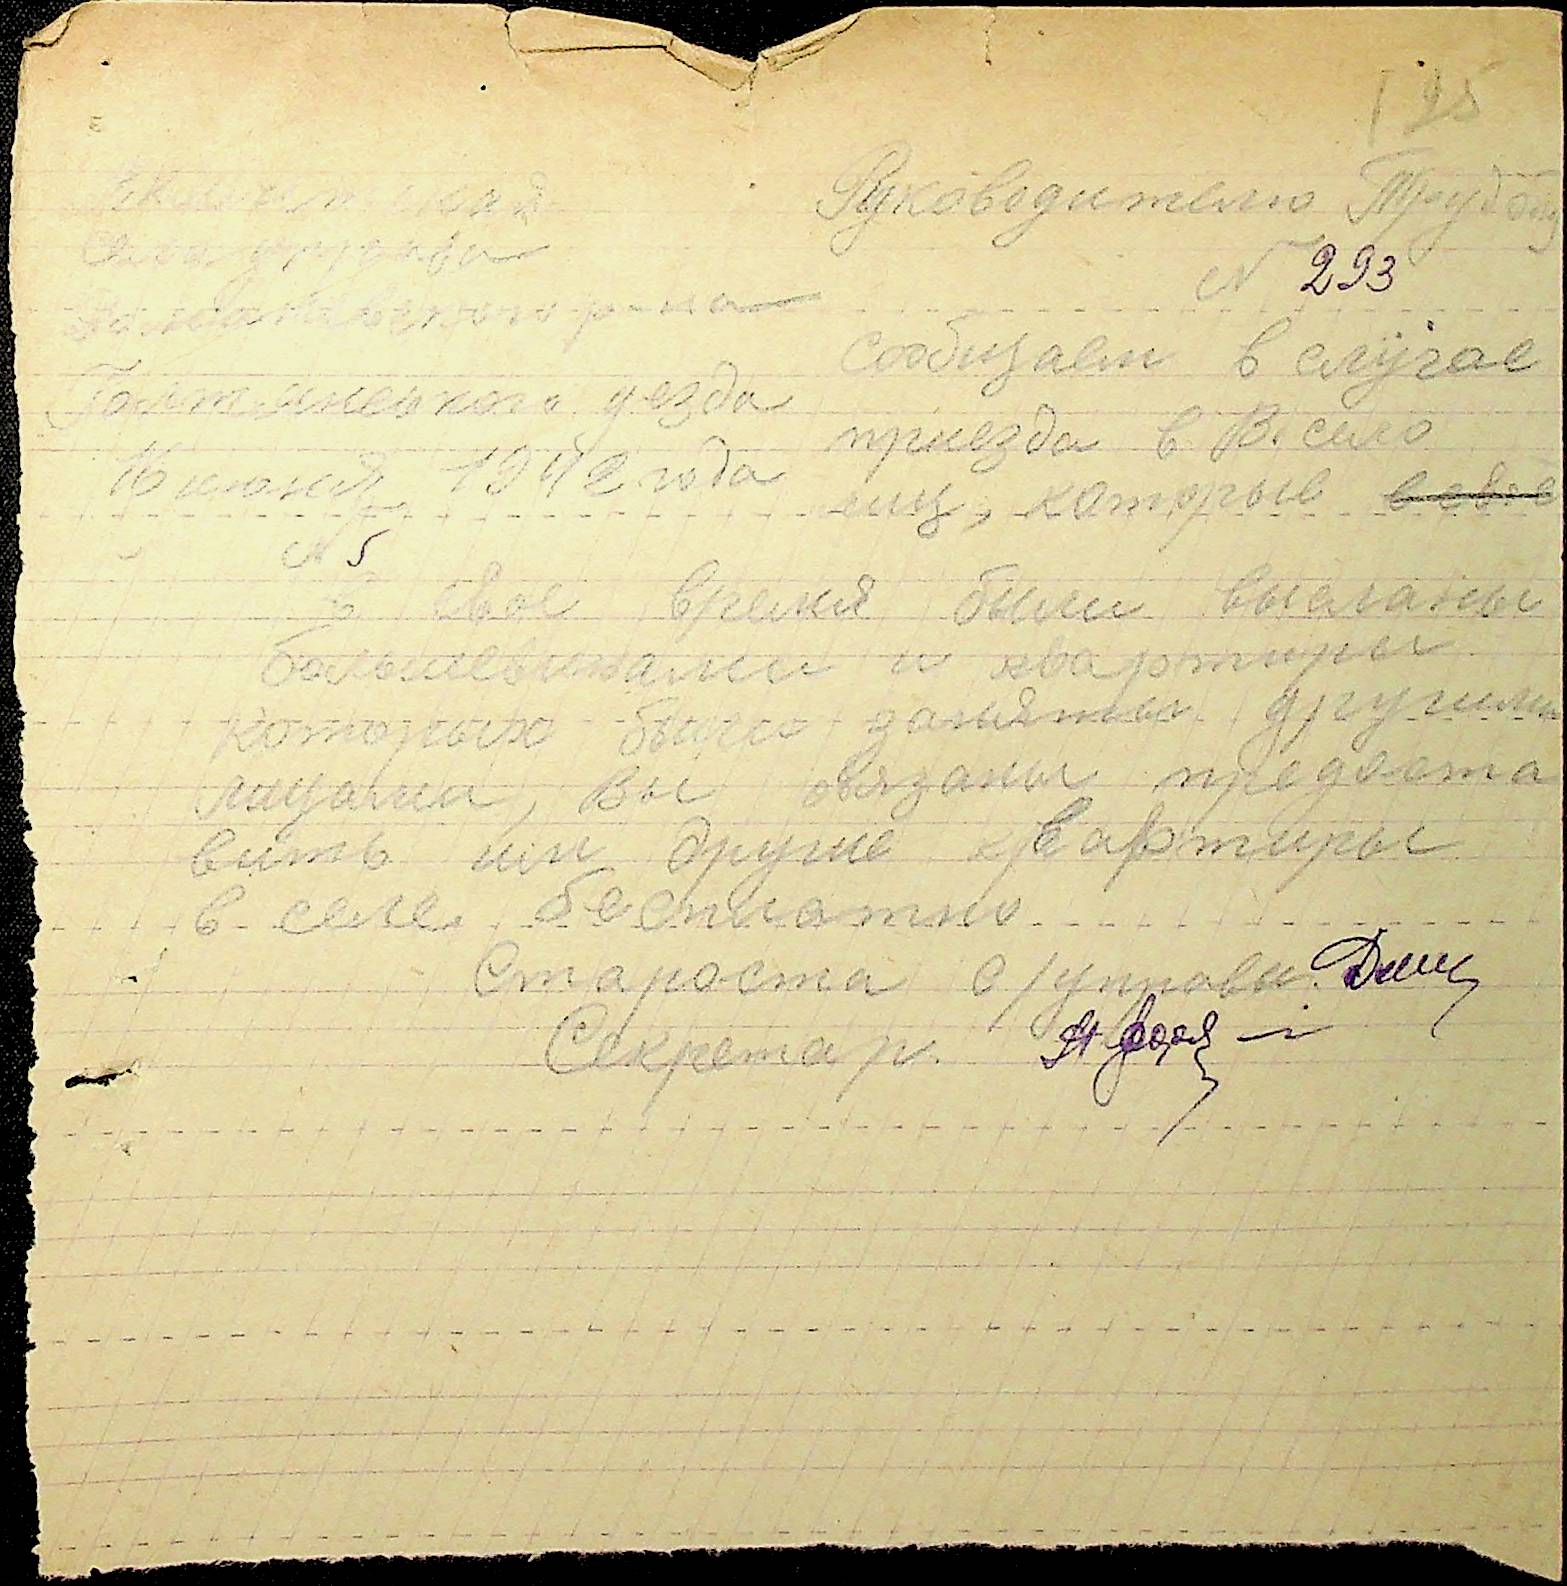 125
Сельуправа
р-на
Голтянского уезда
16 июня 1942 года
N 5
Руководителю Трудобщ
N 293
Сообщаем в случае
приезда в В. село
лиц, которые в свое
в свое время были высланы
большевиками и квартиры
которых были заняты другими
лицами, Вы обязаны предоста
вить им другие квартиры
в селе бесплатно
Староста с/управы
Секретар.